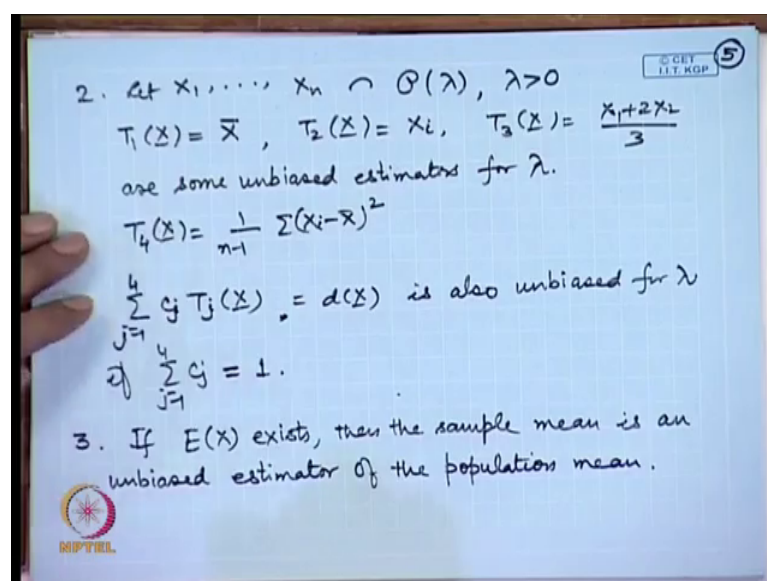 © CET
I.I.T. KGP
5
2. Let X₁, ..., Xₙ ∩ P(λ), λ>0
T₁(X) = X̄, T₂(X) = Xi, T₃(X) = (X₁+2X₂)/3
are some unbiased estimators for λ.
T₄(X) = 1/(n-1) Σ(Xi-X̄)²
Σ_{j=1}^{4} Cj Tj(X) = d(X) is also unbiased for λ
if Σ_{j=1}^{4} Cj = 1.
3. If E(X) exists, then the sample mean is an
unbiased estimator of the population mean.
NPTEL